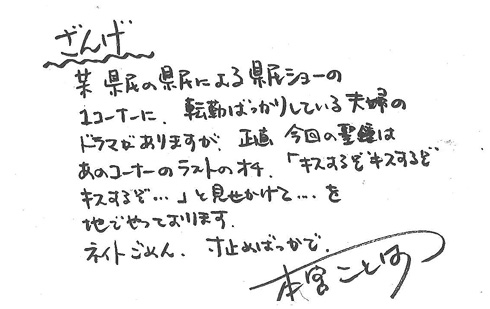 ざんげ
某 県民の県民による県民ショーの
1コーナーに、転勤ばっかりしている夫婦の
ドラマがありますが、正直 今回の聖鐘は
あのコーナーのラストのオチ、「キスするぞキスするぞ
キスするぞ…」と見せかけて…を
地でやっております。
ネイトごめん、寸止めばっかで。
本宮ことは